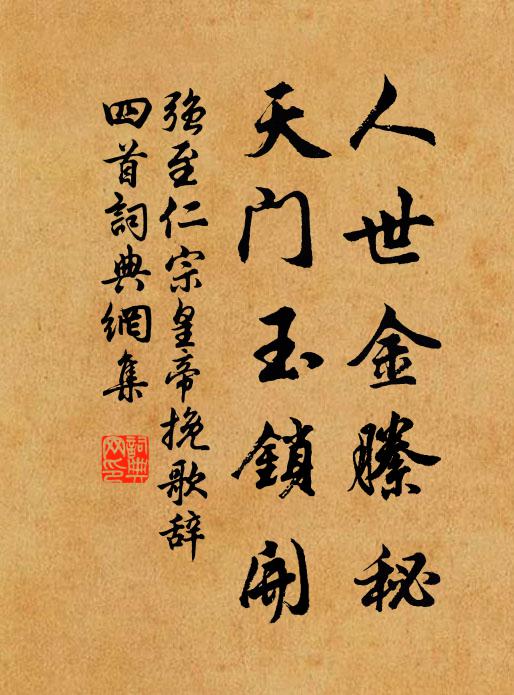 人世金縢秘
天门玉鎖開
强至仁宗皇帝挽歌辞
四首詞典網集
詞典网印